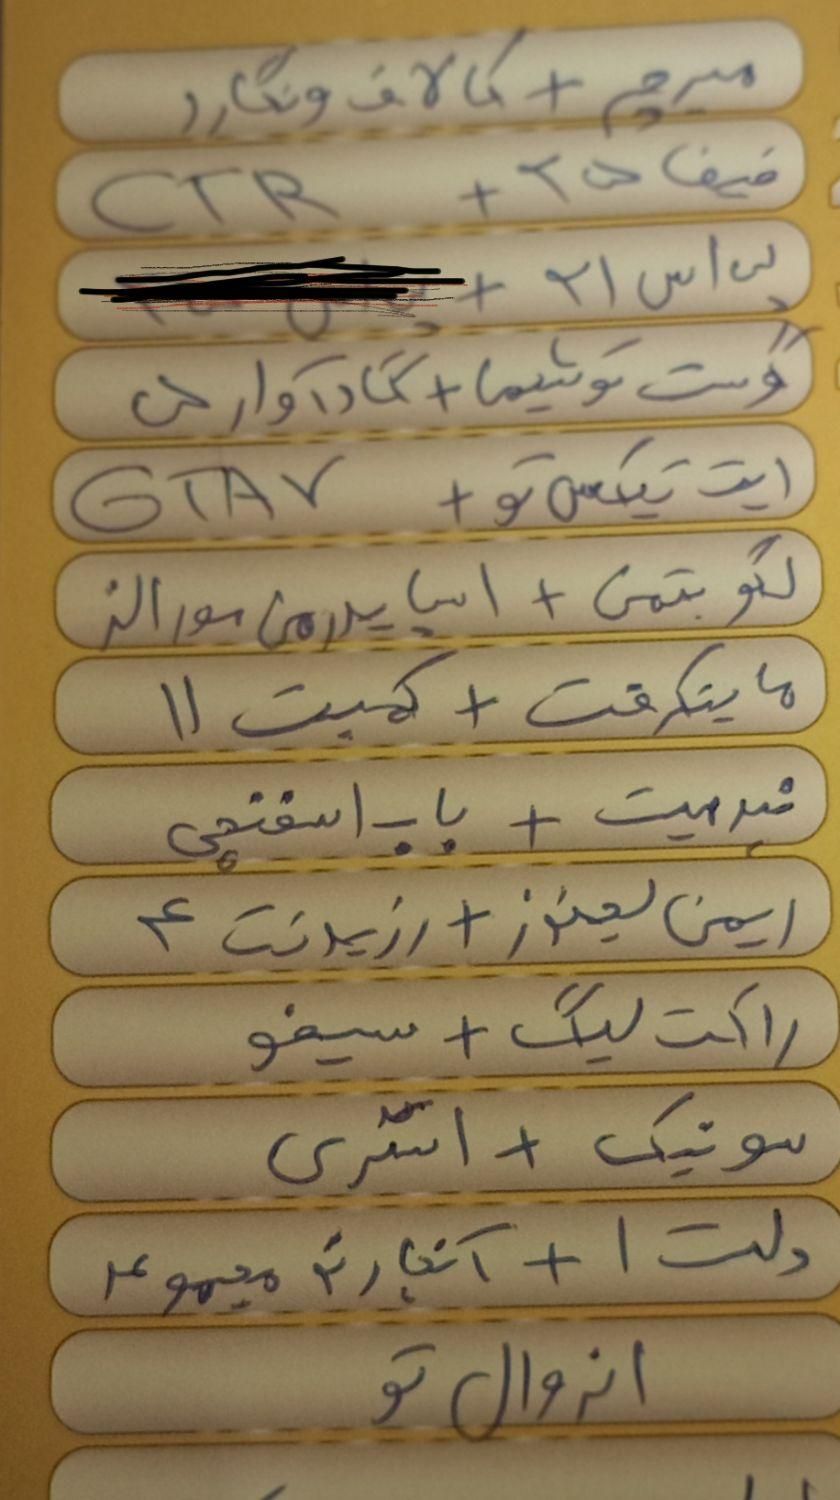 میرچم + کالاف ونگارد
فیفا ۲۵ + CTR
پی اس ۲۱ +
گوست توشیما + گاد آو وار
ایت تیکس تو + GTAV
لگو بتمن + اسپایدرمن مورالز
ماینکرفت + کمبت ۱۱
+ باب اسفنجی
ایمن لجندز + رزیدنت ۴
راکت لیگ + سیفو
سونیک + استری
دلت ۱ + آنچارتد میمو ۴
انزوال تو